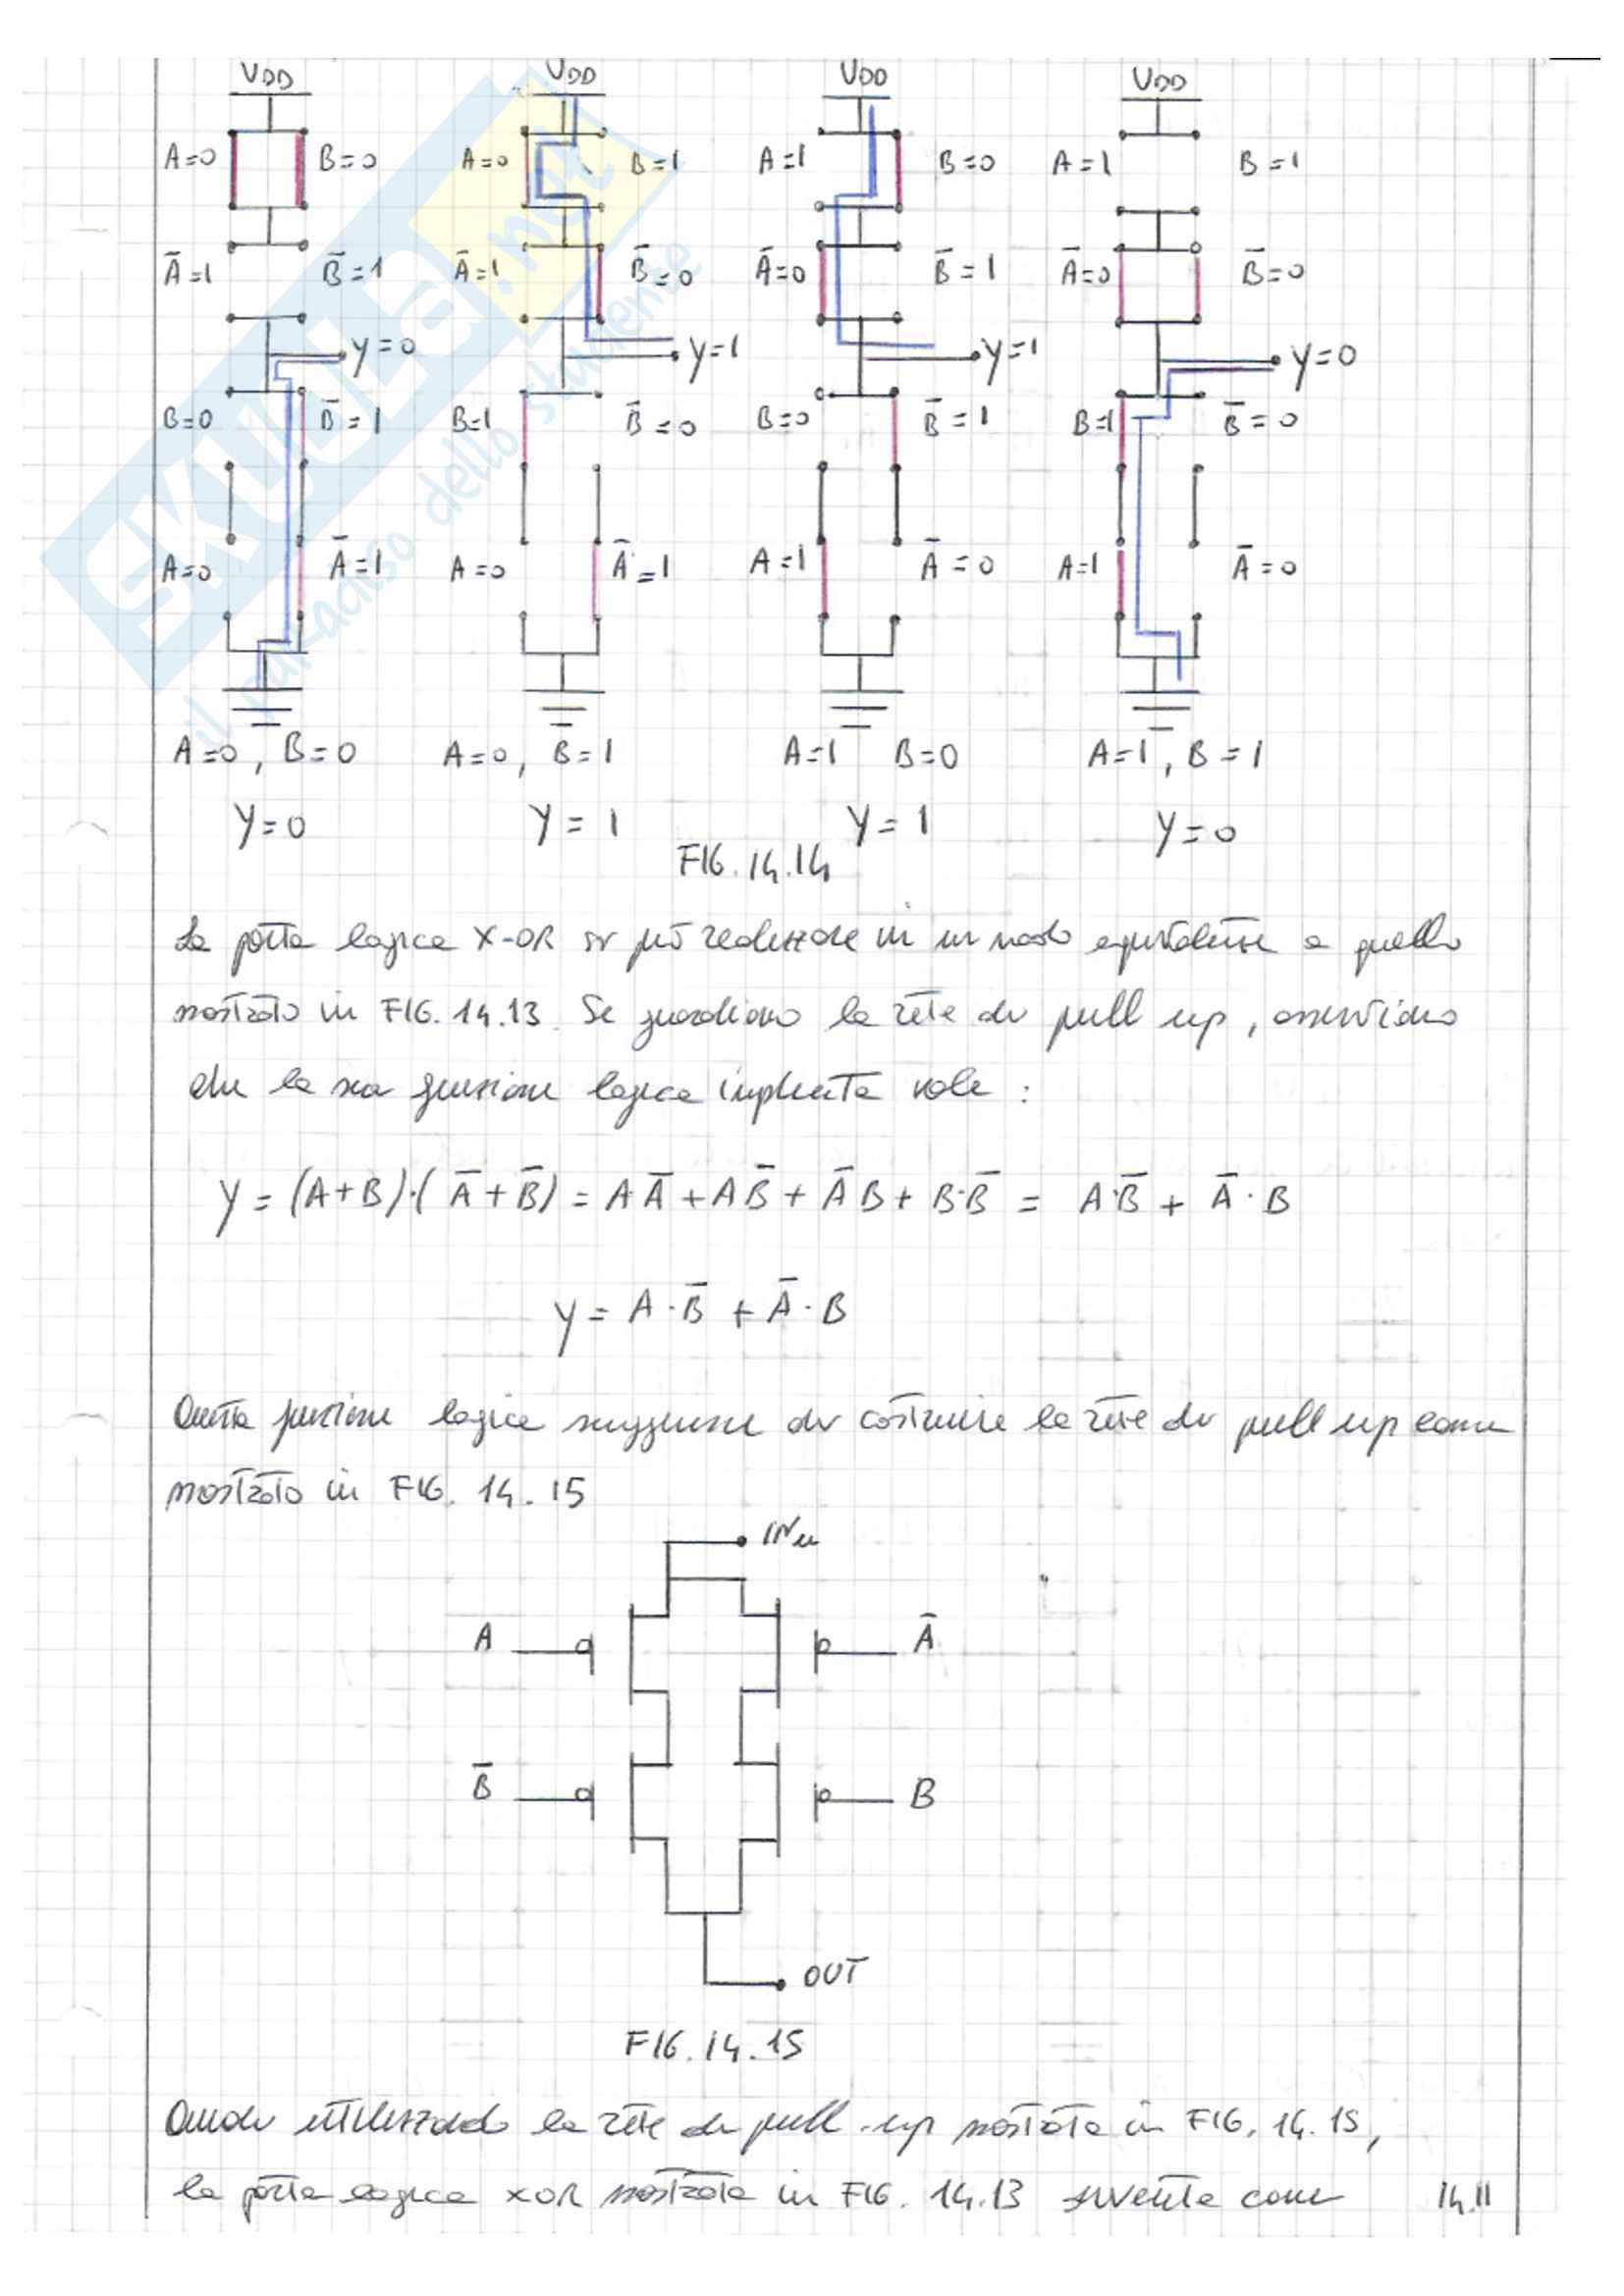 VDD VDD VDD VDD
A=0 B=0 A=0 B=1 A=1 B=0 A=1 B=1
Ā=1 B̄=1 Ā=1 B̄=0 Ā=0 B̄=1 Ā=0 B̄=0
Y=0 Y=1 Y=1 Y=0
B=0 B̄=1 B=1 B̄=0 B=0 B̄=1 B=1 B̄=0
A=0 Ā=1 A=0 Ā=1 A=1 Ā=0 A=1 Ā=0
A=0, B=0 A=0, B=1 A=1 B=0 A=1, B=1
Y=0 Y=1 Y=1 Y=0
FIG. 14.14
La porta logica X-OR si può realizzare in un modo equivalente a quello
mostrato in FIG. 14.13. Se guardiamo la rete di pull up, osserviamo
che la sua funzione logica implementata vale :
Y = (A+B)·(Ā+B̄) = A·Ā + AB̄ + ĀB + B·B̄ = A·B̄ + Ā·B
Y = A·B̄ + Ā·B
Questa funzione logica suggerisce di costruire la rete di pull up come
mostrato in FIG. 14.15
INu
A Ā
B̄ B
OUT
FIG. 14.15
Quindi utilizzando la rete di pull-up mostrata in FIG. 14.15,
la porta logica XOR mostrata in FIG. 14.13 diventa come
14.11
SKUOLA.net
il paradiso dello studente